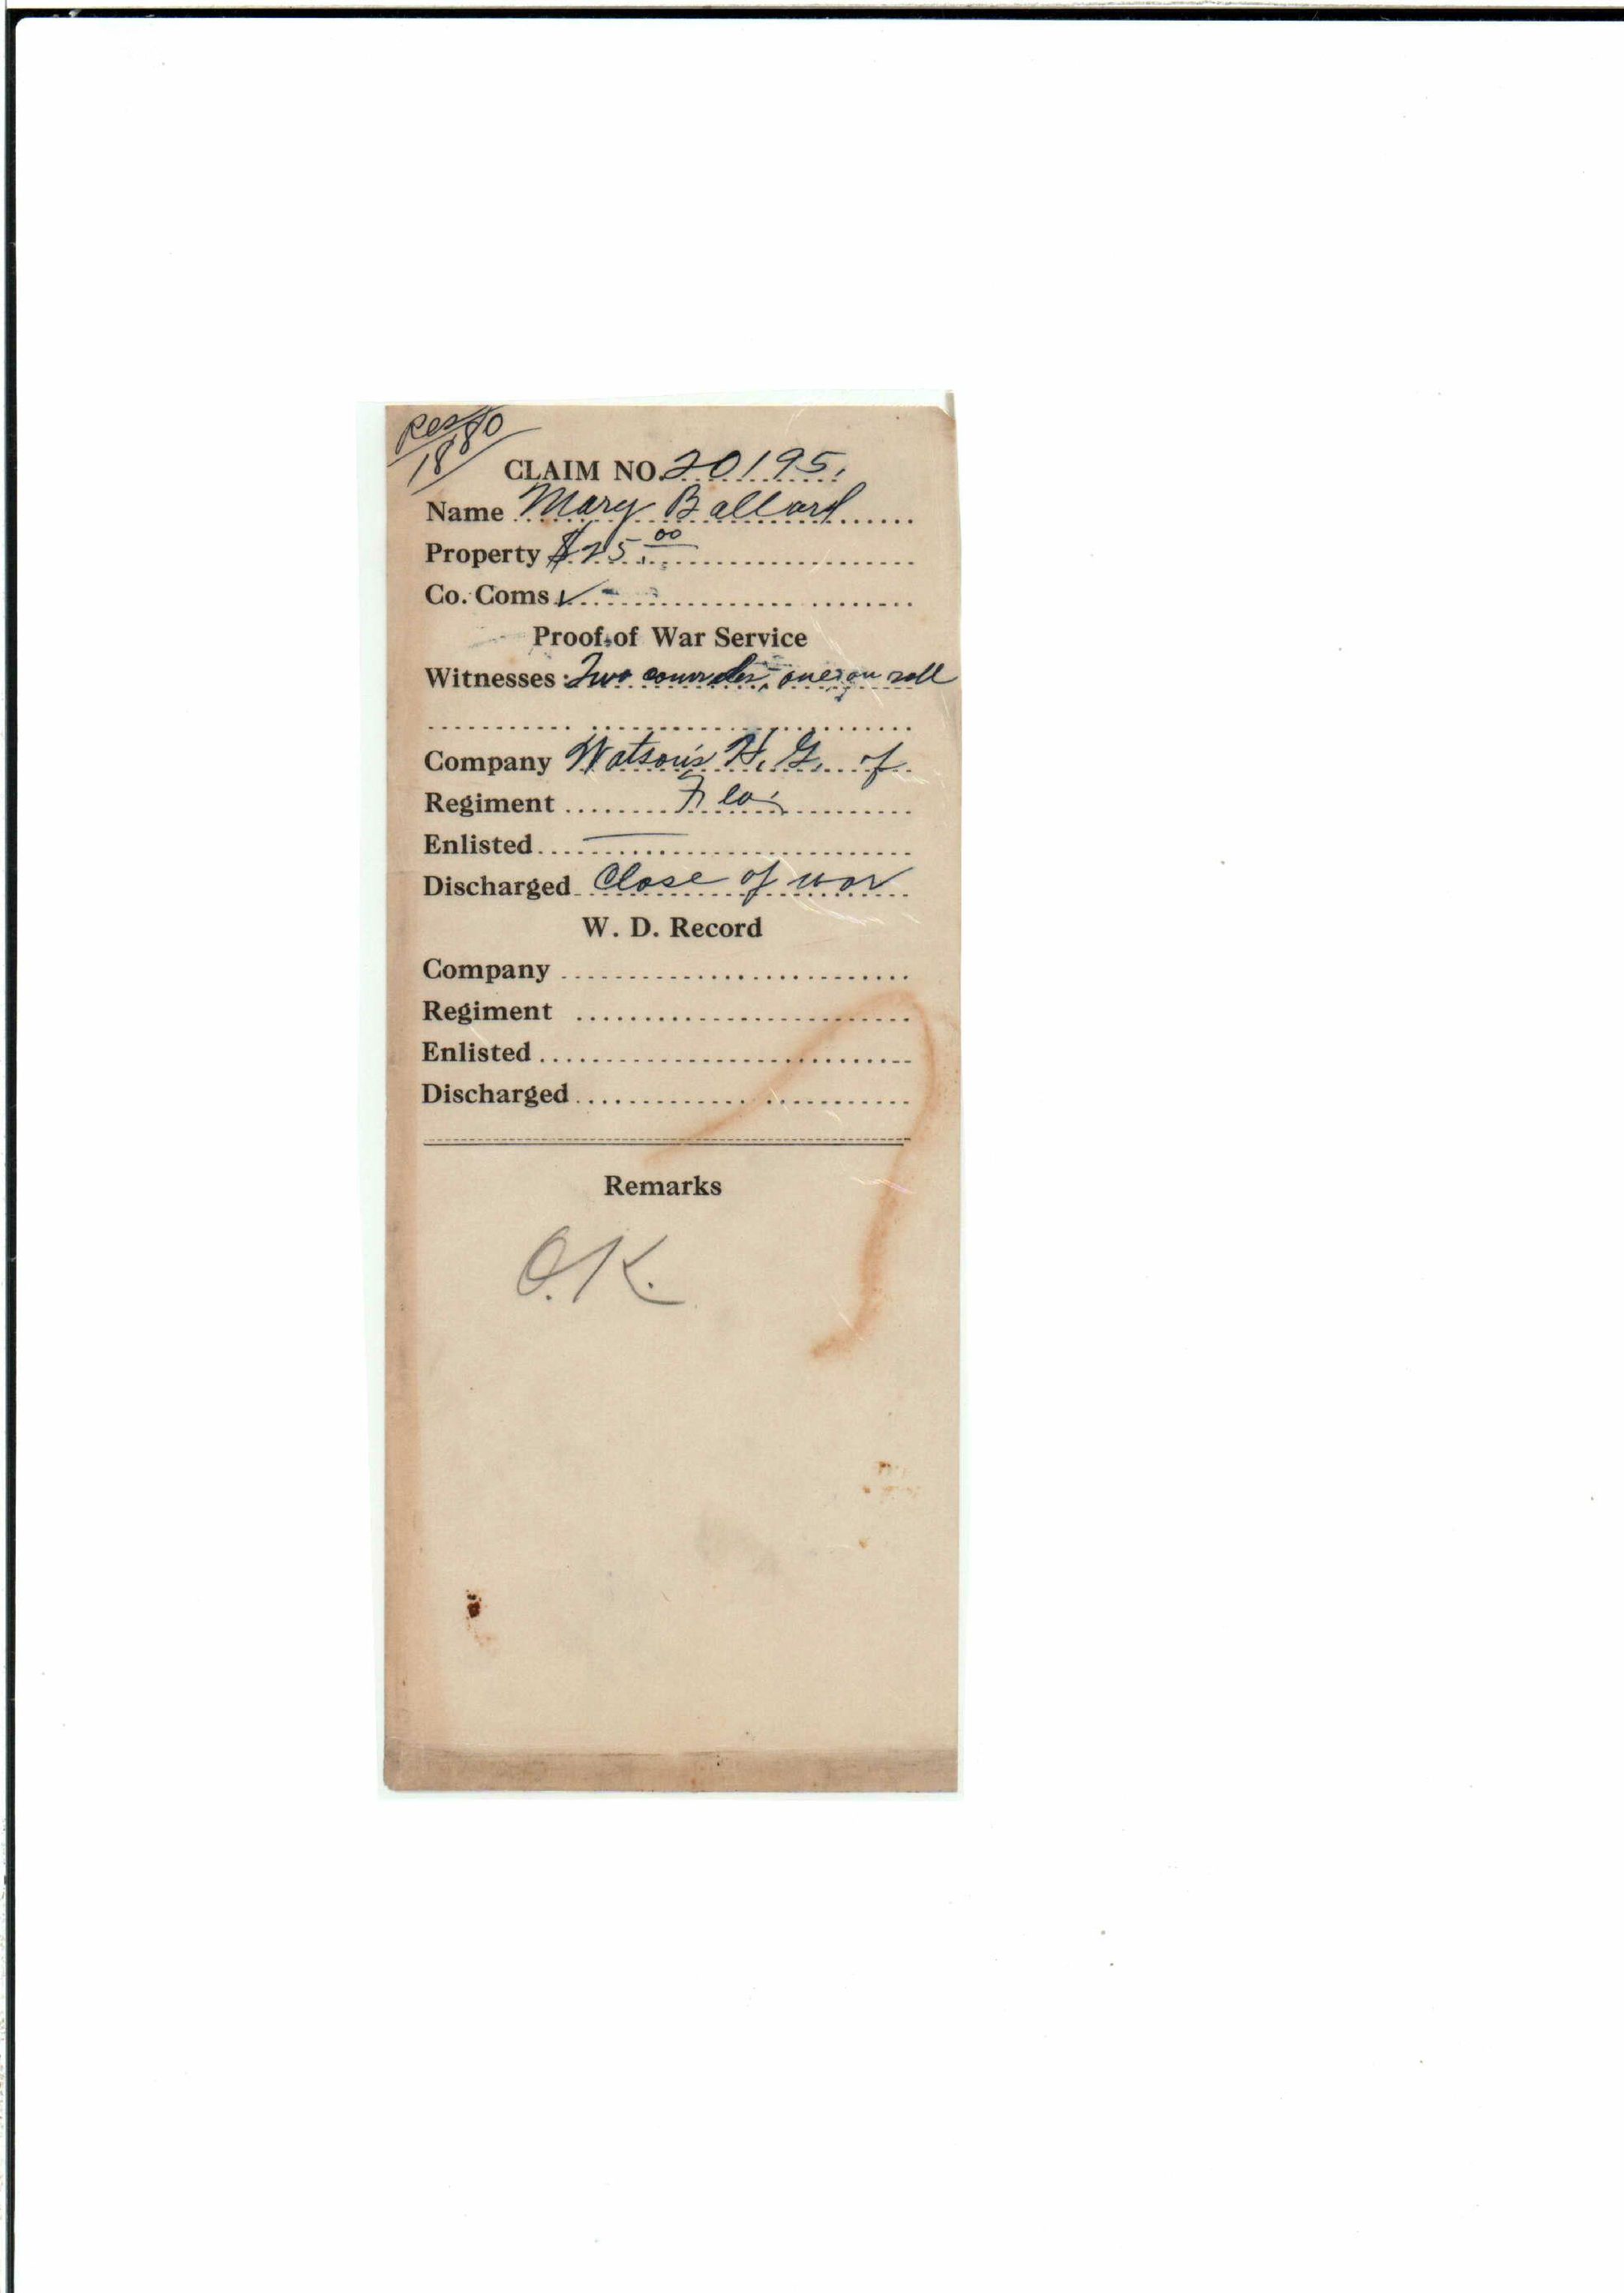 Res
1880
CLAIM NO. 20195.
Name Mary Ballard
Property $25.00
Co. Coms ✓
Proof of War Service
Witnesses: Two comrades, one on roll
Company Watson's H. G. of
Regiment Fla.
Enlisted —
Discharged Close of war
W. D. Record
Company
Regiment
Enlisted
Discharged
Remarks
O.K.